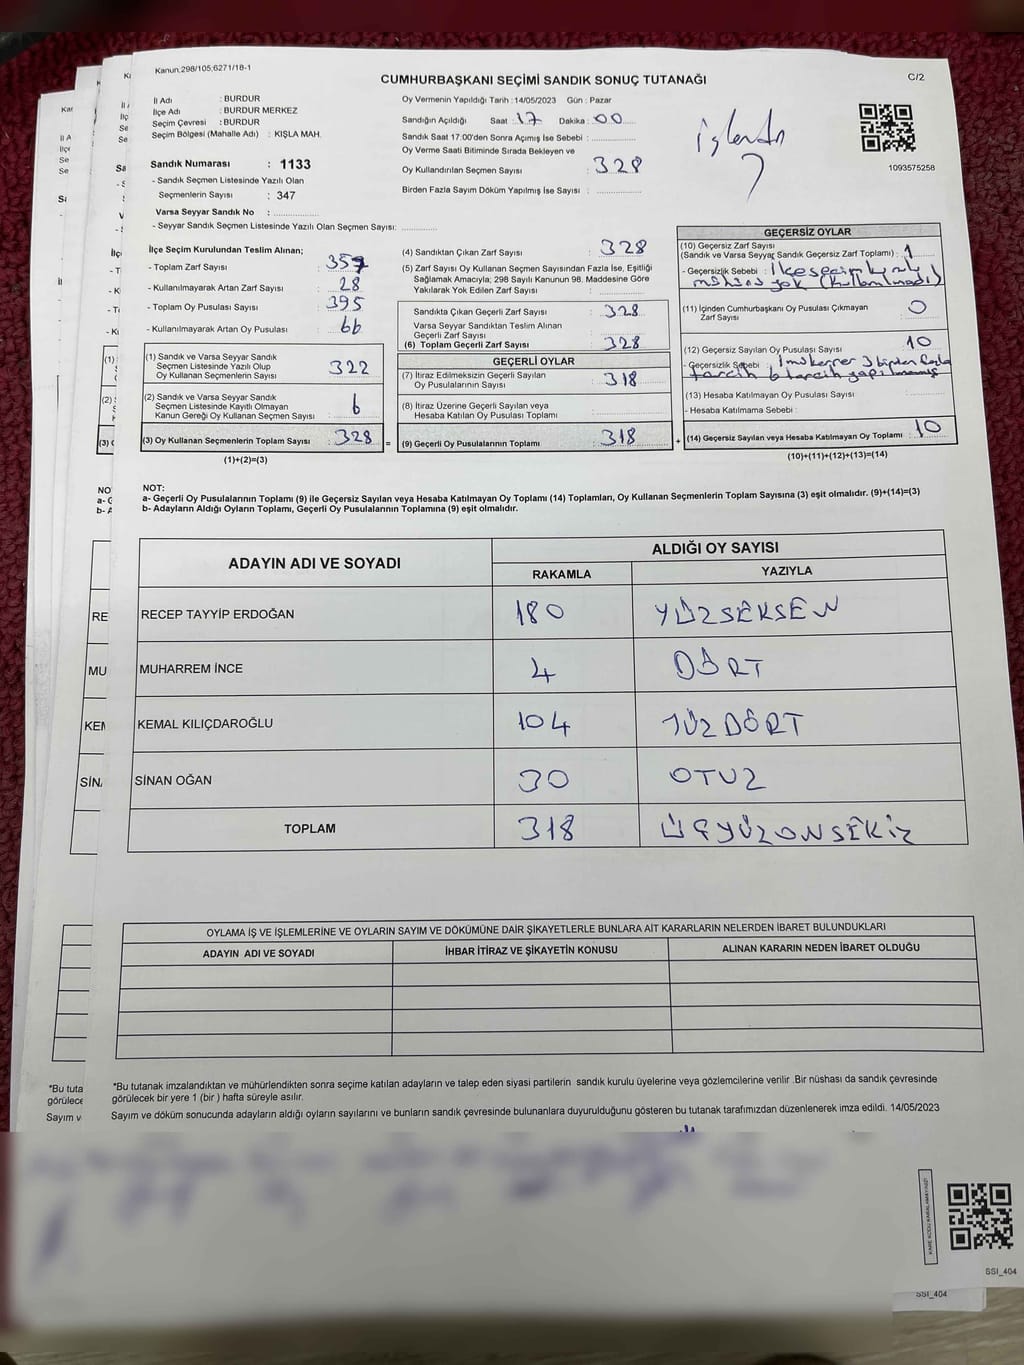 Kanun.298/105;6271/18-1
CUMHURBAŞKANI SEÇİMİ SANDIK SONUÇ TUTANAĞI
C/2
İl Adı : BURDUR
İlçe Adı : BURDUR MERKEZ
Seçim Çevresi : BURDUR
Seçim Bölgesi (Mahalle Adı) : KIŞLA MAH.
Sandık Numarası : 1133
- Sandık Seçmen Listesinde Yazılı Olan
Seçmenlerin Sayısı : 347
Varsa Seyyar Sandık No : ..................
- Seyyar Sandık Seçmen Listesinde Yazılı Olan Seçmen Sayısı: ..............
Oy Vermenin Yapıldığı Tarih : 14/05/2023 Gün : Pazar
Sandığın Açıldığı Saat : 17 Dakika : 00
Sandık Saat 17:00'den Sonra Açımış İse Sebebi : ..................
Oy Verme Saati Bitiminde Sırada Bekleyen ve
Oy Kullandırılan Seçmen Sayısı : 328
Birden Fazla Sayım Döküm Yapılmış İse Sayısı : ..................
işlendi
1093575258
İlçe Seçim Kurulundan Teslim Alınan;
- Toplam Zarf Sayısı : 357
- Kullanılmayarak Artan Zarf Sayısı : 28
- Toplam Oy Pusulası Sayısı : 395
- Kullanılmayarak Artan Oy Pusulası : 66
(1) Sandık ve Varsa Seyyar Sandık
Seçmen Listesinde Yazılı Olup
Oy Kullanan Seçmenlerin Sayısı : 322
(2) Sandık ve Varsa Seyyar Sandık
Seçmen Listesinde Kayıtlı Olmayan
Kanun Gereği Oy Kullanan Seçmen Sayısı : 6
(3) Oy Kullanan Seçmenlerin Toplam Sayısı : 328
(1)+(2)=(3)
(4) Sandıktan Çıkan Zarf Sayısı : 328
(5) Zarf Sayısı Oy Kullanan Seçmen Sayısından Fazla İse, Eşitliği
Sağlamak Amacıyla; 298 Sayılı Kanunun 98. Maddesine Göre
Yakılarak Yok Edilen Zarf Sayısı : ..................
Sandıkta Çıkan Geçerli Zarf Sayısı : 328
Varsa Seyyar Sandıktan Teslim Alınan
Geçerli Zarf Sayısı : ..................
(6) Toplam Geçerli Zarf Sayısı : 328
GEÇERLİ OYLAR
(7) İtiraz Edilmeksizin Geçerli Sayılan
Oy Pusulalarının Sayısı : 318
(8) İtiraz Üzerine Geçerli Sayılan veya
Hesaba Katılan Oy Pusulası Toplamı : ..................
=
(9) Geçerli Oy Pusulalarının Toplamı : 318
+
GEÇERSİZ OYLAR
(10) Geçersiz Zarf Sayısı
(Sandık ve Varsa Seyyar Sandık Geçersiz Zarf Toplamı) : 1
- Geçersizlik Sebebi : İlçe seçim kurulu
mührü yok (kullanılmadı)
(11) İçinden Cumhurbaşkanı Oy Pusulası Çıkmayan
Zarf Sayısı : 0
(12) Geçersiz Sayılan Oy Pusulası Sayısı : 10
- Geçersizlik Sebebi : 1 mükerrer 3 birden fazla
tercih 6 tercih yapılmamış
(13) Hesaba Katılmayan Oy Pusulası Sayısı :
- Hesaba Katılmama Sebebi :
(14) Geçersiz Sayılan veya Hesaba Katılmayan Oy Toplamı : 10
(10)+(11)+(12)+(13)=(14)
NOT:
a- Geçerli Oy Pusulalarının Toplamı (9) ile Geçersiz Sayılan veya Hesaba Katılmayan Oy Toplamı (14) Toplamları, Oy Kullanan Seçmenlerin Toplam Sayısına (3) eşit olmalıdır. (9)+(14)=(3)
b- Adayların Aldığı Oyların Toplamı, Geçerli Oy Pusulalarının Toplamına (9) eşit olmalıdır.
ADAYIN ADI VE SOYADI
ALDIĞI OY SAYISI
RAKAMLA YAZIYLA
RECEP TAYYİP ERDOĞAN 180 YÜZSEKSEN
MUHARREM İNCE 4 DÖRT
KEMAL KILIÇDAROĞLU 104 YÜZDÖRT
SİNAN OĞAN 30 OTUZ
TOPLAM 318 ÜÇYÜZONSEKİZ
OYLAMA İŞ VE İŞLEMLERİNE VE OYLARIN SAYIM VE DÖKÜMÜNE DAİR ŞİKAYETLERLE BUNLARA AİT KARARLARIN NELERDEN İBARET BULUNDUKLARI
ADAYIN ADI VE SOYADI İHBAR İTİRAZ VE ŞİKAYETİN KONUSU ALINAN KARARIN NEDEN İBARET OLDUĞU
*Bu tutanak imzalandıktan ve mühürlendikten sonra seçime katılan adayların ve talep eden siyasi partilerin sandık kurulu üyelerine veya gözlemcilerine verilir .Bir nüshası da sandık çevresinde
görülecek bir yere 1 (bir ) hafta süreyle asılır.
Sayım ve döküm sonucunda adayların aldığı oyların sayılarını ve bunların sandık çevresinde bulunanlara duyurulduğunu gösteren bu tutanak tarafımızdan düzenlenerek imza edildi. 14/05/2023
KARE KODU KARALAMAYINIZ!
SSI_404
SSI_404